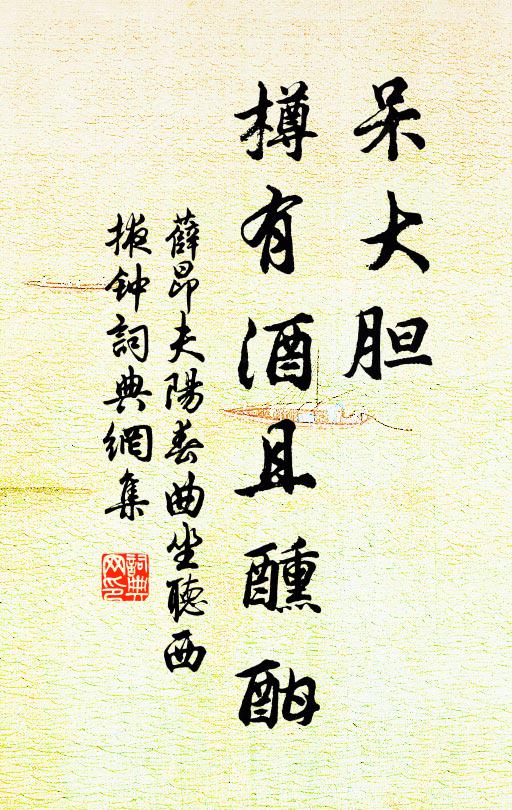 呆大胆
樽有酒且醺酣
薛昂夫陽春曲坐聽西
掖钟詞典網集
詞典
网印